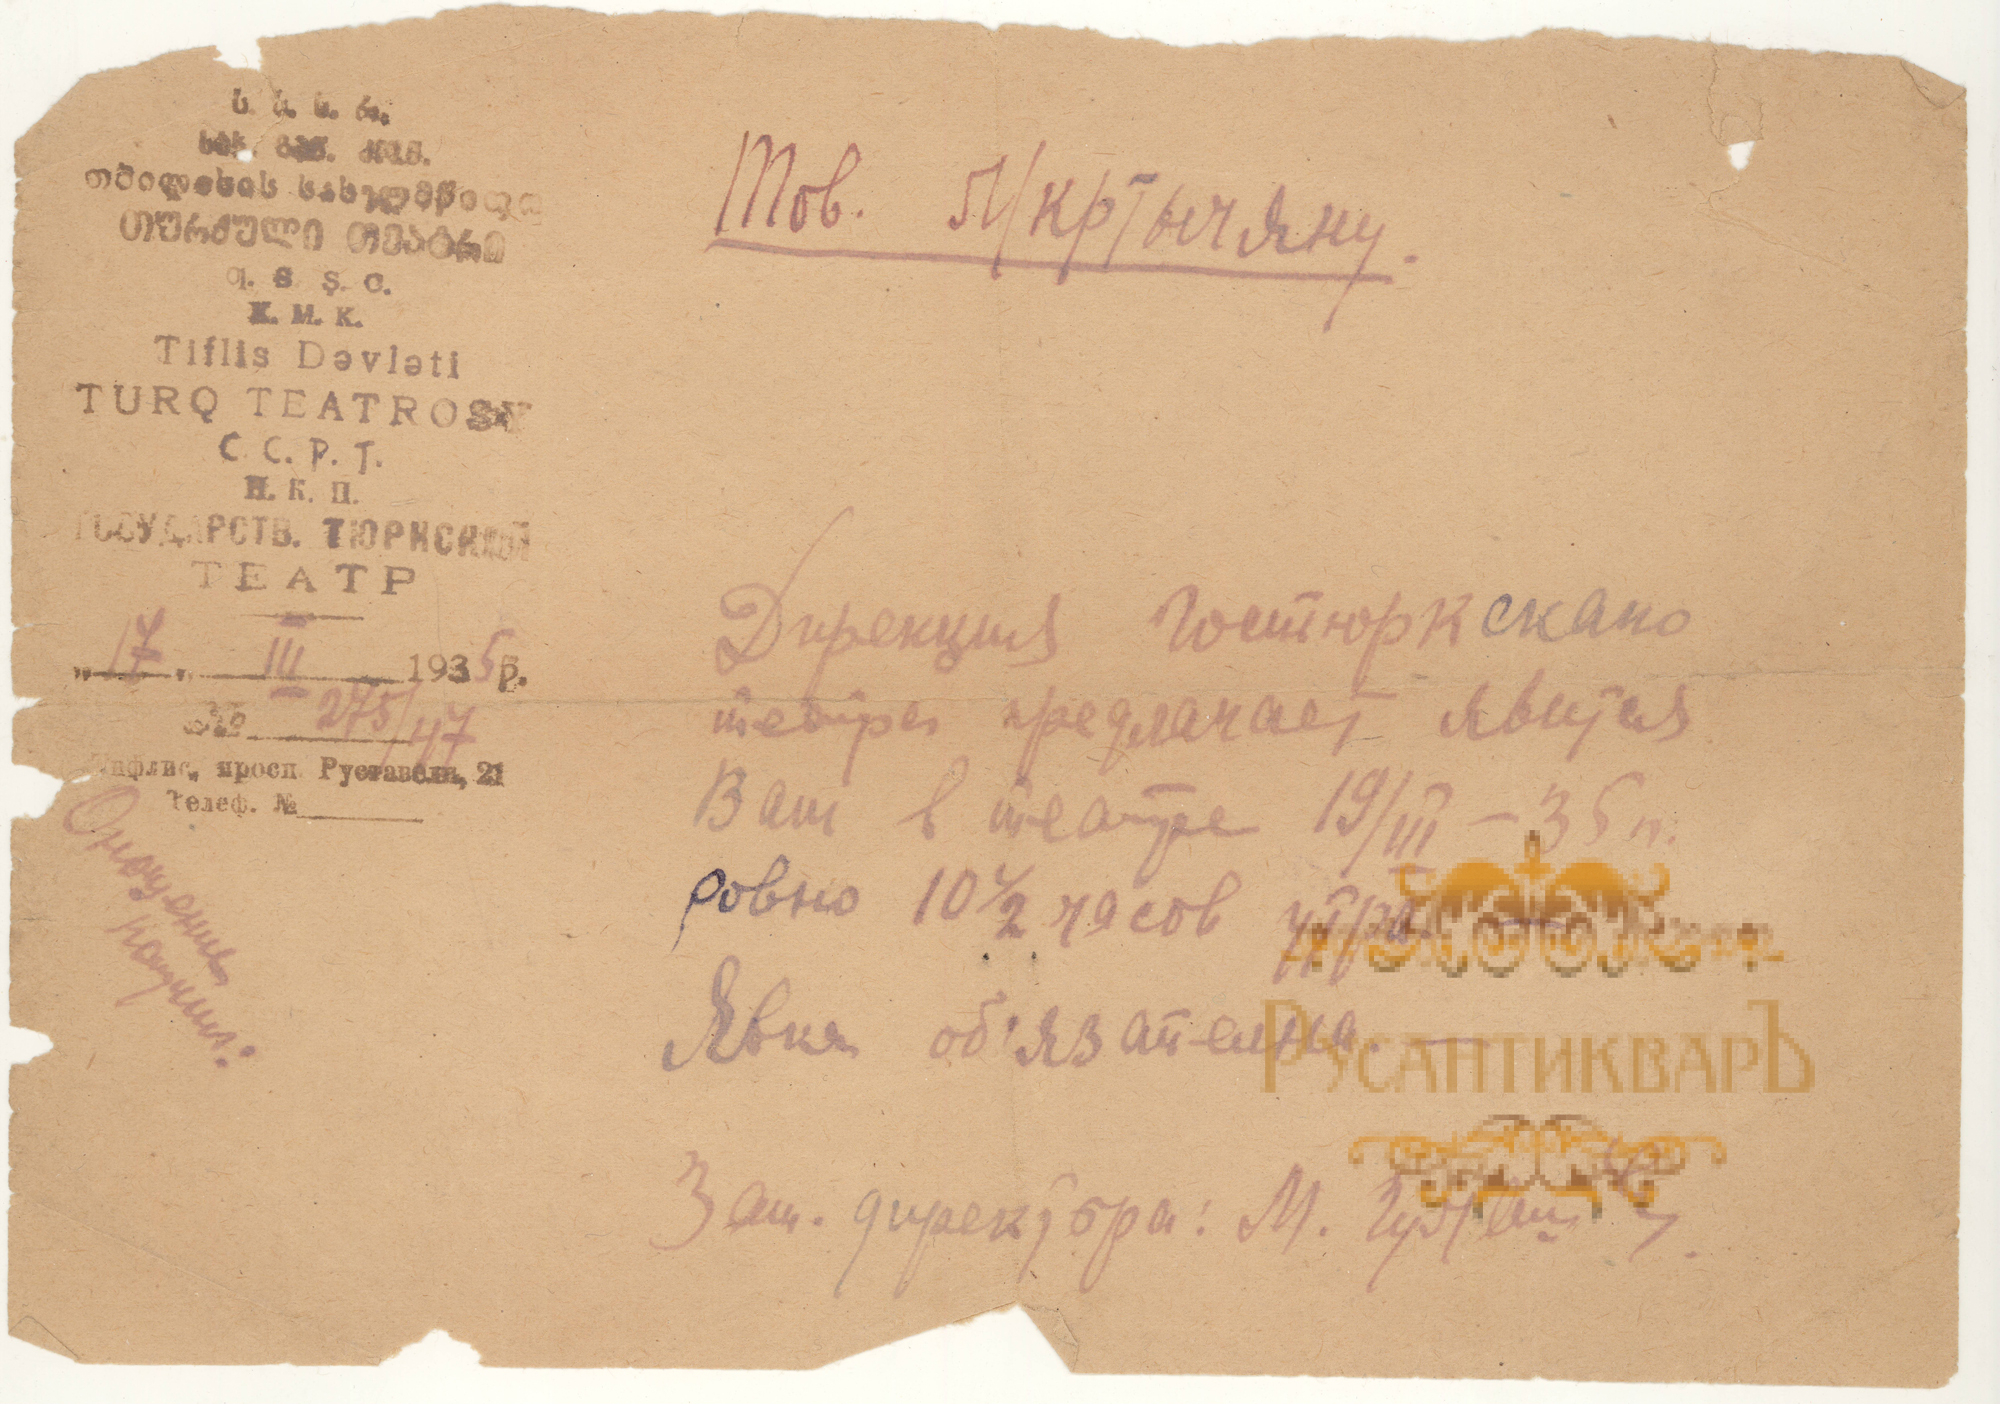 ს. ს. ს. რ.
თბილისის სახელმწიფო
თურქული თეატრი
Q. S. Ş. C.
X. M. K.
Tiflis Dəvləti
TURQ TEATROSY
С. С. Р. Г.
Н. К. П.
ГОСУДАРСТВ. ТЮРКСКИЙ
ТЕАТР
„17„ III 1935 г.
№ 275/47
Тифлис, просп. Руставели, 21
Телеф. №
Тов. Мкртычяну.
Дирекция Гостюркскаго
театра предлагает явится
Вам в театре 19/III – 35 г.
ровно 10 1/2 часов утра. —
Явка об'язателна. —
Зам. директора: М.
РУСАНТИКВАРЪ